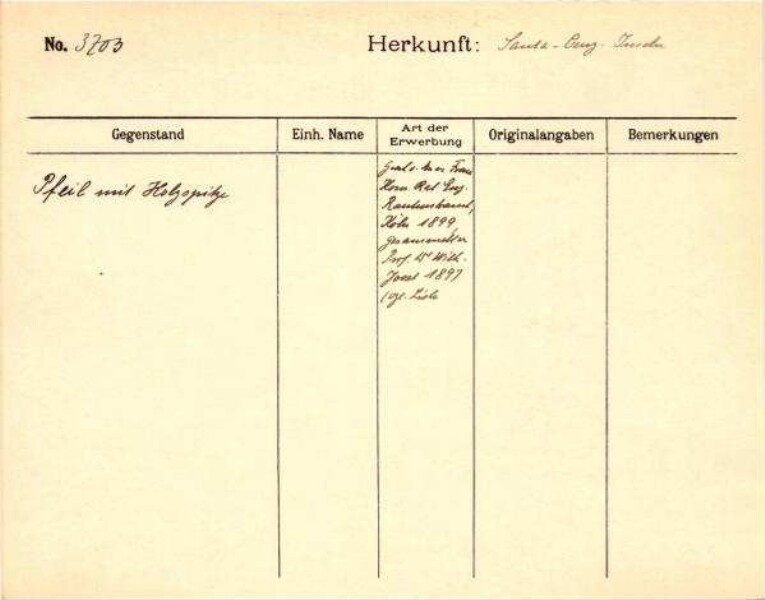 No. 3703 Herkunft: Santa-Cruz-Inseln
Gegenstand Einh. Name Art der Erwerbung Originalangaben Bemerkungen
Pfeil mit Holzspitze
Frau
Rat Eug.
Rautenstrauch,
Köln 1899,
gesammelt von
Prof. Dr Wilh.
Joest 1897
vgl. Liste